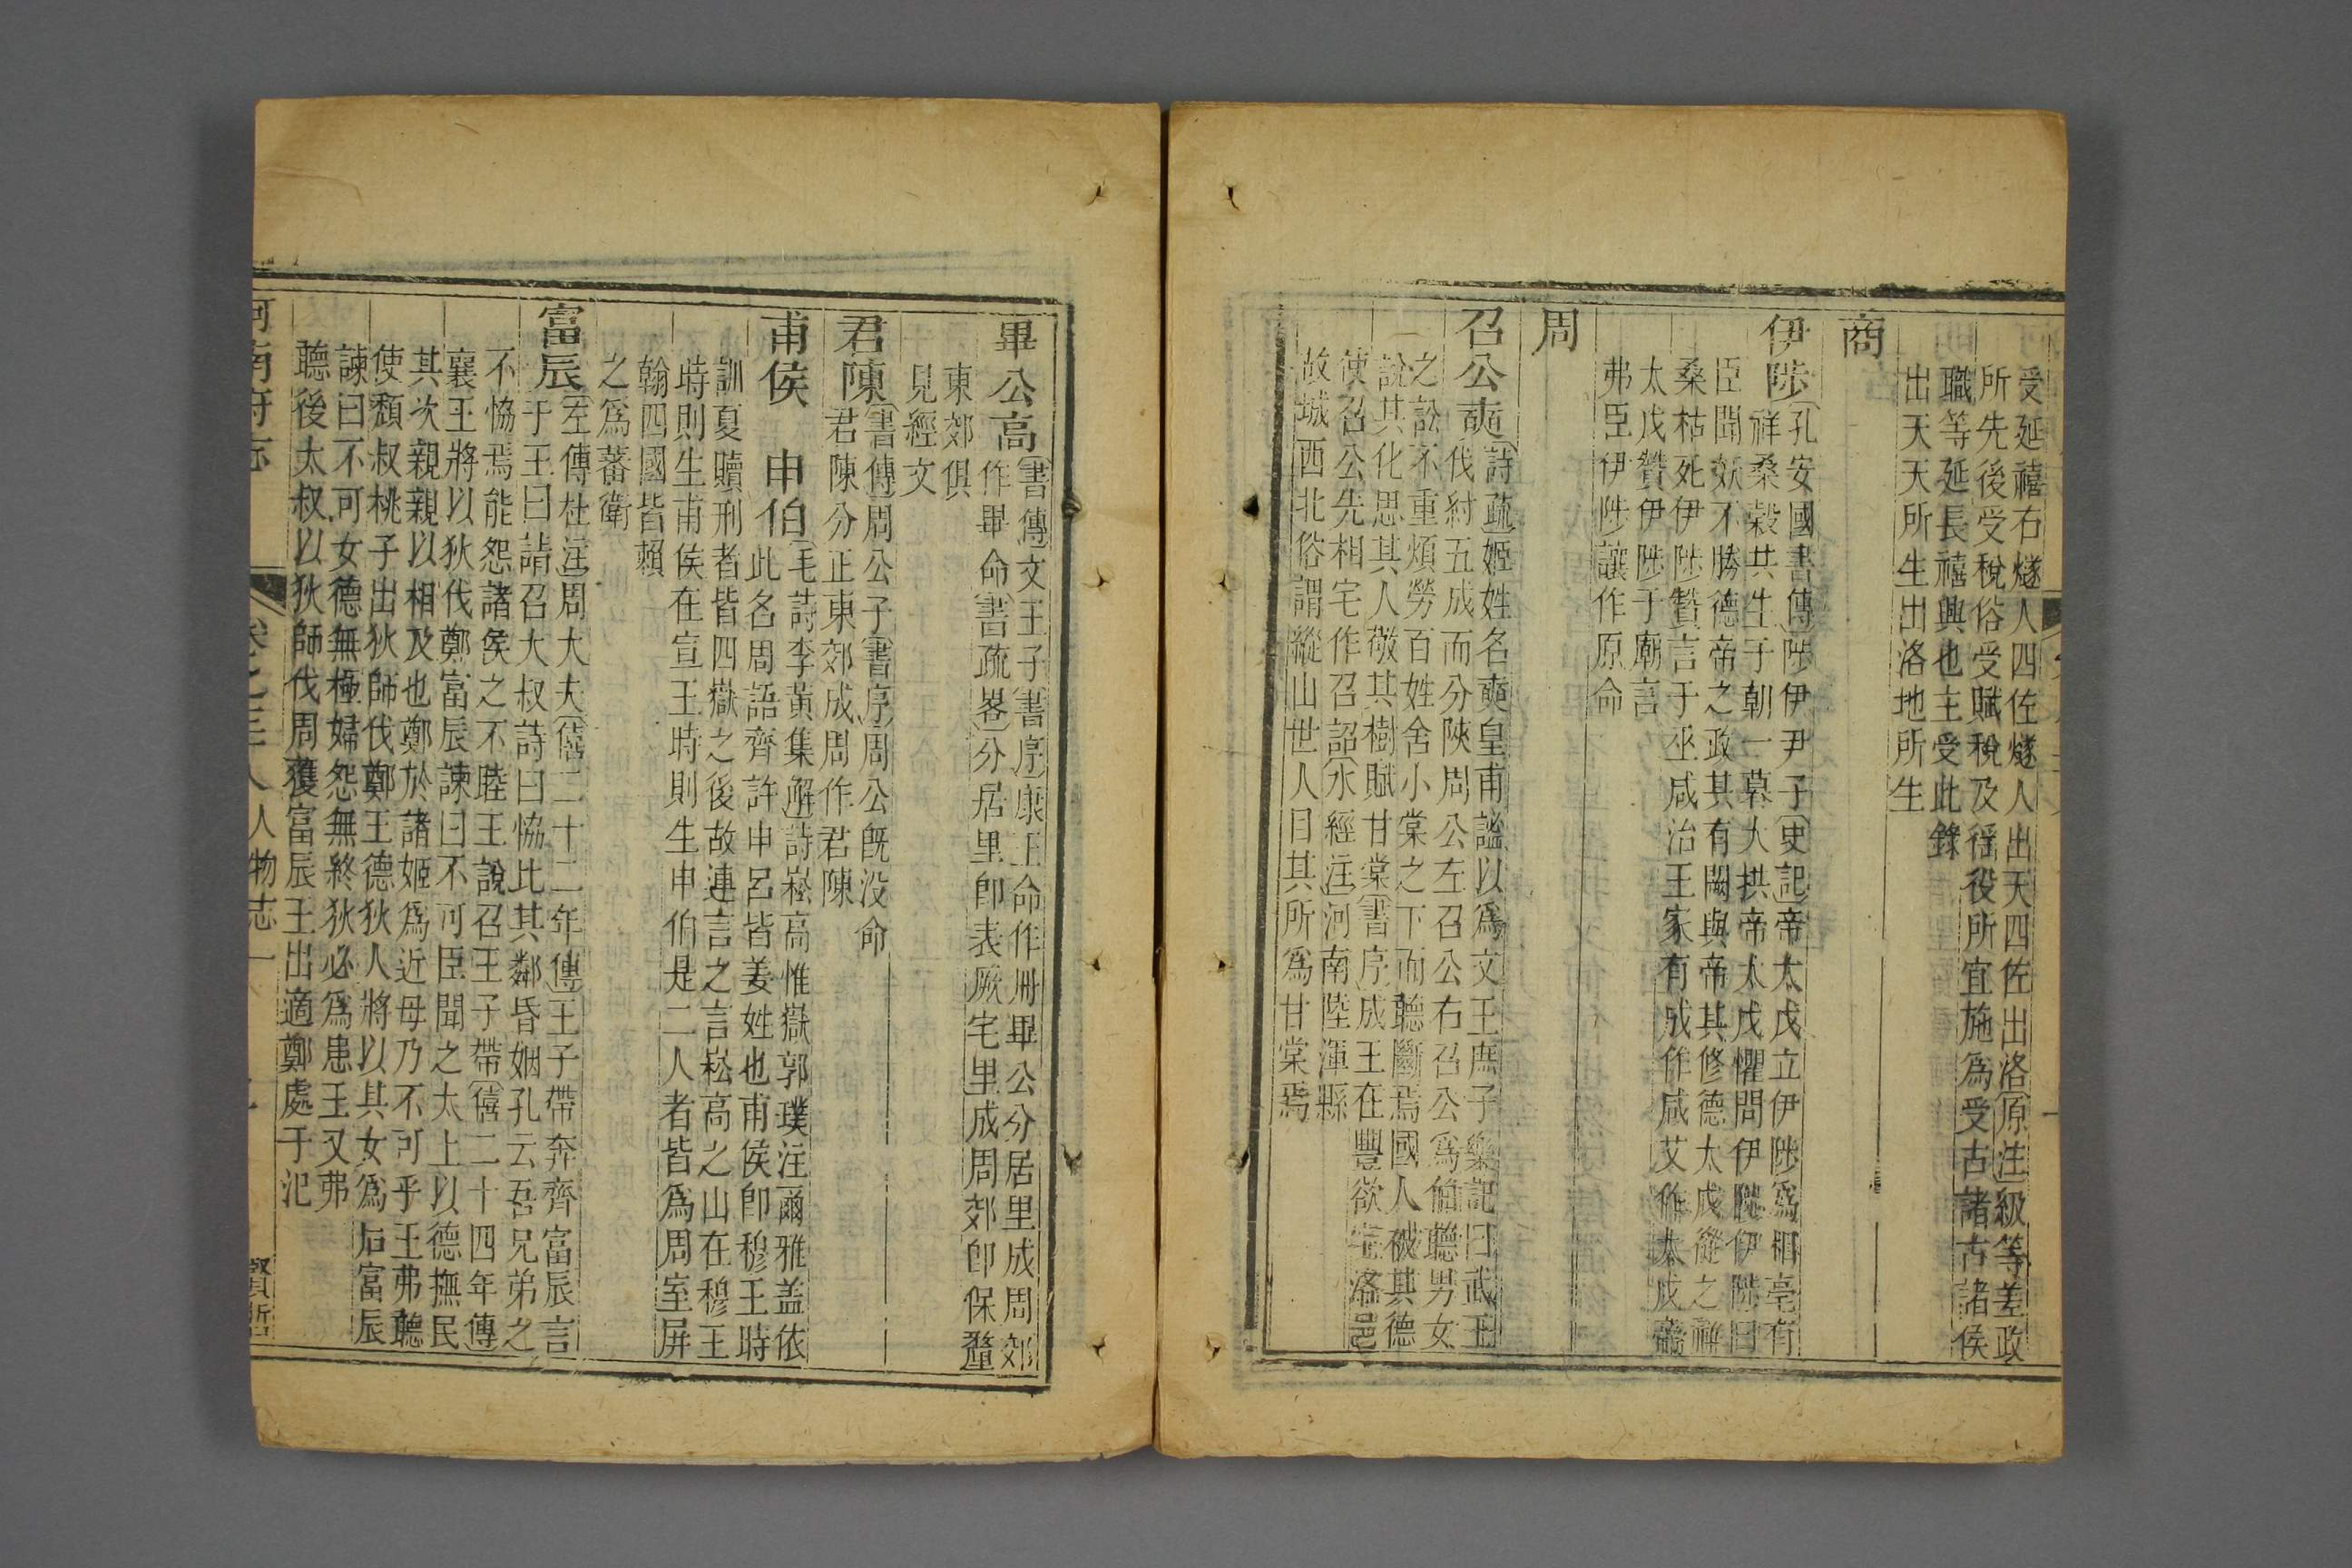 受延禧右燧人四佐燧人出天四佐出洛原注級等差政
所先後受稅俗受賦稅及徭役所宜施爲受古諸古諸侯
職等延長禧興也主受此錄
出天天所生出洛地所生
商
伊陟孔安國書傳陟伊尹子史記帝太戊立伊陟爲相亳有
祥桑榖共生于朝一暮大拱帝太戊懼問伊陟伊陟曰
臣聞妖不勝德帝之政其有闕與帝其修德太戊從之祥
桑枯死伊陟贊言于巫咸治王家有成作咸艾作太戊帝
太戊贊伊陟于廟言
弗臣伊陟讓作原命
周
召公奭詩疏姬姓名奭皇甫謐以爲文王庶子樂記曰武王
伐紂五成而分陝周公左召公右召公爲伯聽男女
之訟不重煩勞百姓舍小棠之下而聽斷焉國人被其德
說其化思其人敬其樹賦甘棠書序成王在豐欲宅洛邑
使召公先相宅作召詔水經注河南陸渾縣
故城西北俗謂縱山世人目其所爲甘棠焉
畢公高書傳文王子書序康王命作册畢公分居里成周郊
作畢命書疏畧分居里卽表厥宅里成周郊卽保釐
東郊俱
見經文
君陳書傳周公子書序周公旣没命
君陳分正東郊成周作君陳
甫侯 申伯毛詩李黃集解詩崧高惟嶽郭璞注爾雅盖依
此名周語齊許申呂皆姜姓也甫侯卽穆王時
訓夏贖刑者皆四嶽之後故連言之言崧高之山在穆王
時則生甫侯在宣王時則生申伯是二人者皆爲周室屏
翰四國皆賴
之爲蕃衛
富辰左傳杜注周大夫僖二十二年傳王子帶奔齊富辰言
于王曰請召大叔詩曰協比其鄰昏姻孔云吾兄弟之
不協焉能怨諸侯之不睦王說召王子帶僖二十四年傳
襄王將以狄伐鄭富辰諫曰不可臣聞之太上以德撫民
其次親親以相及也鄭於諸姬爲近母乃不可乎王弗聽
使頹叔桃子出狄師伐鄭王德狄人將以其女爲后富辰
諫曰不可女德無極婦怨無終狄必爲患王又弗
聽後太叔以狄師伐周獲富辰王出適鄭處于氾
河南府志 卷之三 人物志一